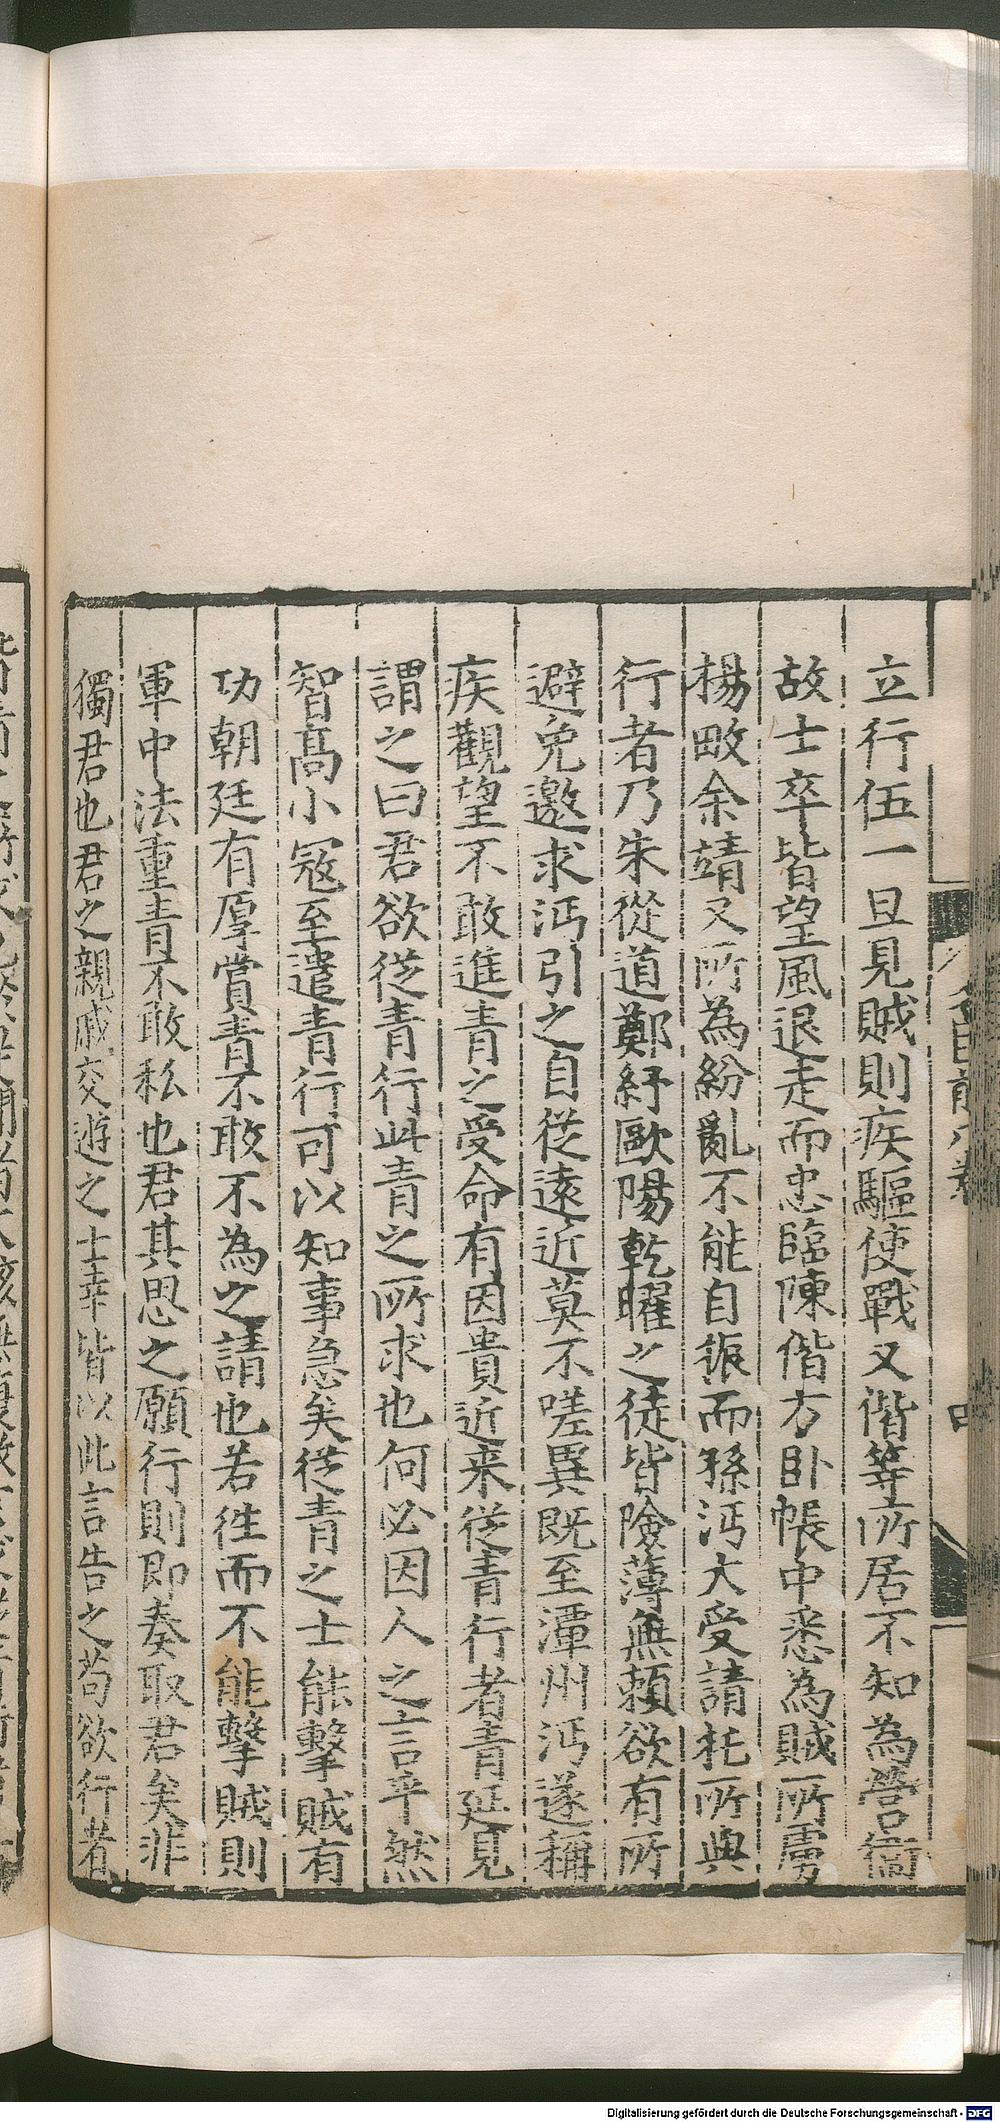 立行伍一旦見賊則疾驅使戰又偕等所居不知為營衛
故士卒皆望風退走而忠臨陳偕方卧帳中悉為賊所虜
楊畋余靖又所為紛亂不能自振而孫沔大受請托所與
行者乃朱從道鄭紓歐陽乾曜之徒皆險薄無賴欲有所
避免邀求沔引之自從遠近莫不嗟異既至潭州沔遂稱
疾觀望不敢進青之受命有因貴近来從青行者青延見
謂之曰君欲從青行此青之所求也何必因人之言乎然
智高小冦至遣青行可以知事急矣從青之士能擊賊有
功朝廷有厚賞青不敢不為之請也若徃而不能擊賊則
軍中法重青不敢私也君其思之願行則即奏取君矣非
獨君也君之親戚交遊之士幸皆以此言告之苟欲行者
Digitalisierung gefördert durch die Deutsche Forschungsgemeinschaft - DFG